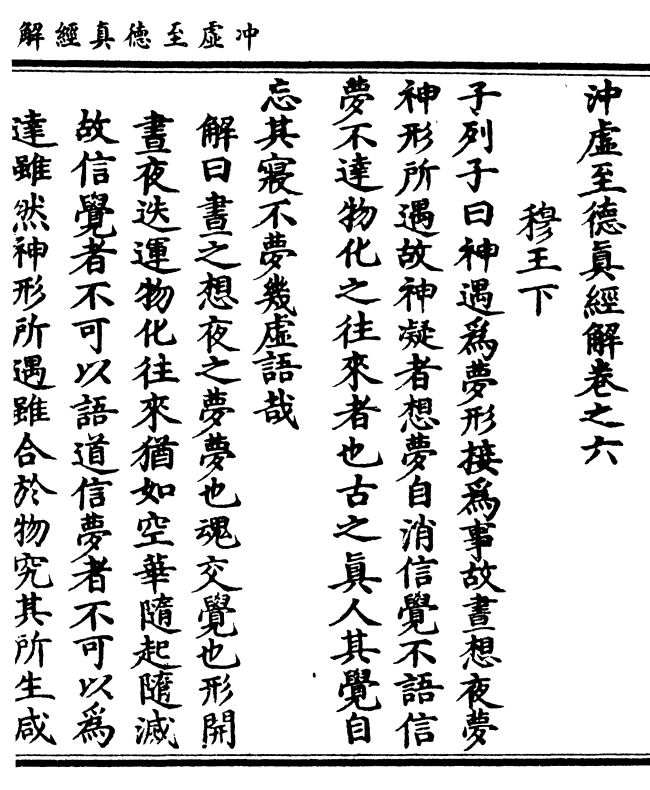 冲虛至德真經解
沖虛至德眞經解卷之六
穆王下
子列子曰神遇爲夢形接爲事故晝想夜夢
神形所遇故神凝者想夢自消信覺不語信
夢不達物化之往來者也古之眞人其覺自
忘其寢不夢幾虛語哉
解曰晝之想夜之夢夢也魂交覺也形開
晝夜迭運物化往來猶如空華隨起隨滅
故信覺者不可以語道信夢者不可以爲
達雖然神形所遇雖合於物究其所生咸